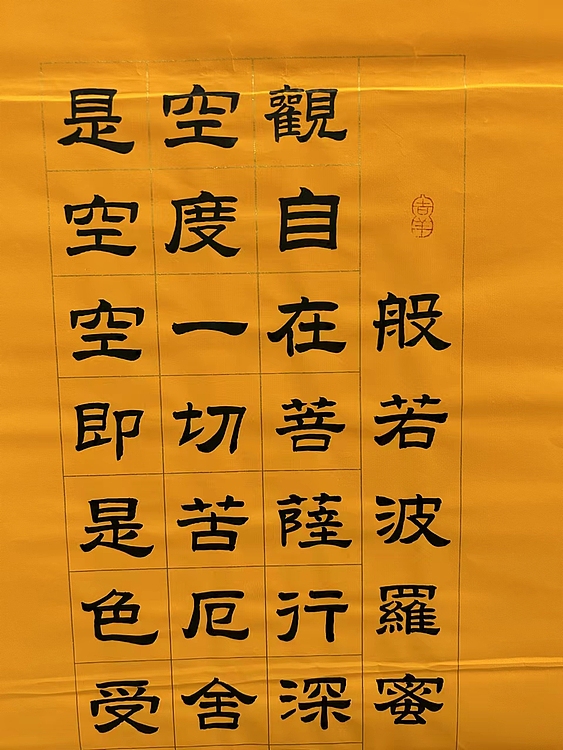 般若波羅蜜
觀自在菩薩行深
空度一切苦厄舍
是空空即是色受
吉羊